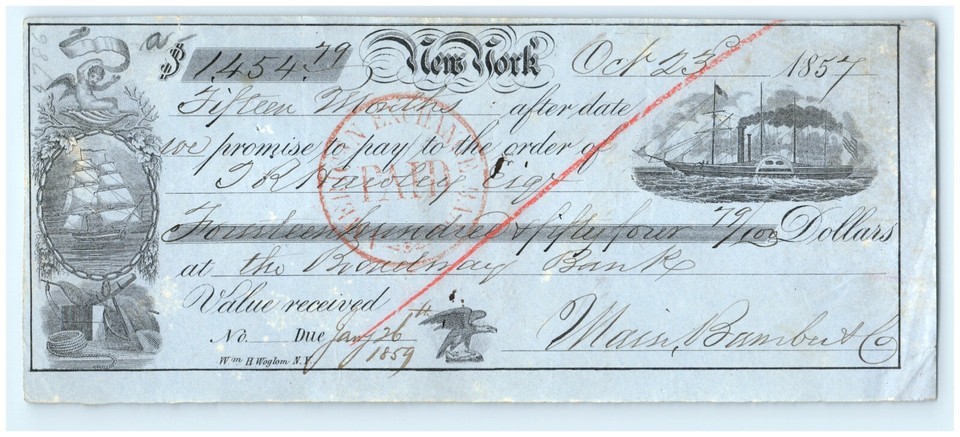 a $ 1,454.79 New York Oct 23 1857
Fifteen Months after date
we promise to pay to the order of
Esqr
Fourteen hundred & fifty four 79/100 Dollars
at the Broadway Bank
Value received
No. Due Jany 26th 1859
Wm H. Woglom N.Y.
Main, Bamber & Co
PAID